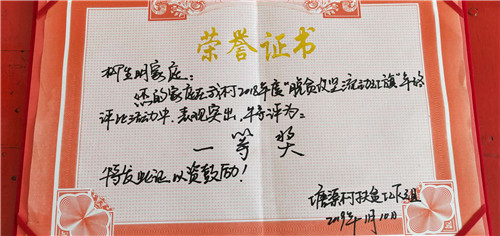 荣誉证书
柳明家庭：
您的家庭在我村2018年度"脱贫攻坚流动红旗"年终
评比活动中，表现突出，特评为：
一等奖
特发此证，以资鼓励！
塘源村扶贫工作组
2019年1月10日